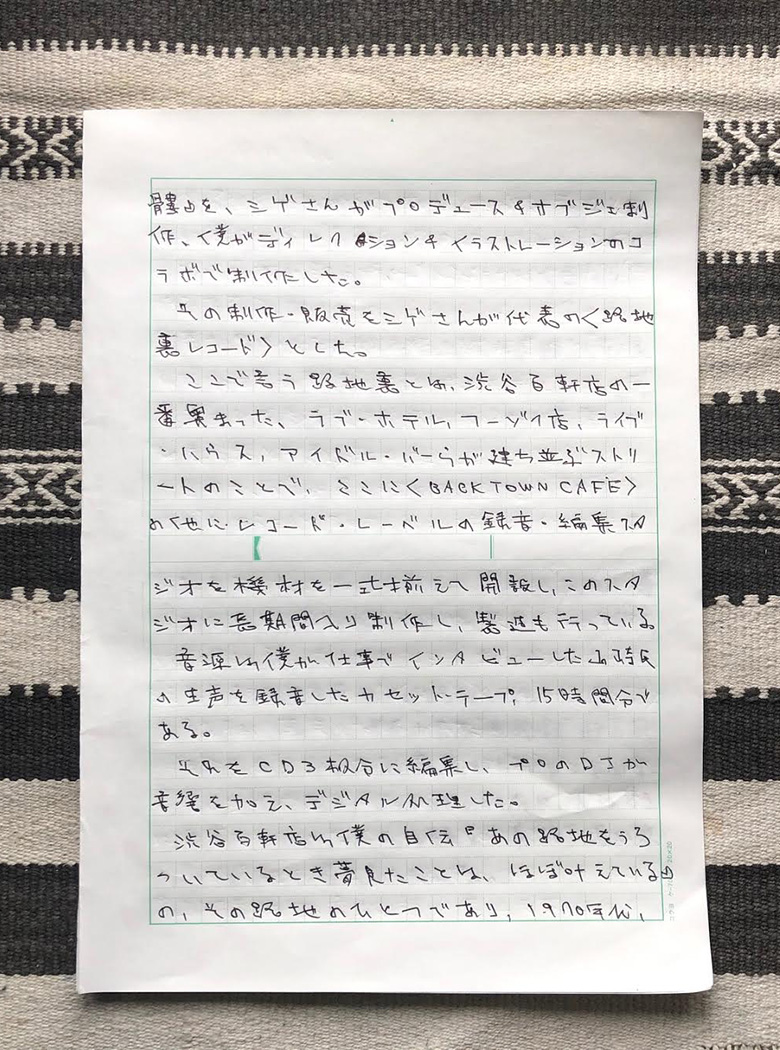 髏』を、シゲさんがプロデュース&オブジェ制
作、僕がディレクション&イラストレーションのコ
ラボで制作した。
その制作・販売をシゲさんが代表の〈路地
裏レコード〉とした。
ここで言う路地裏とは、渋谷百軒店の一
番奥まった、ラブ・ホテル、フーゾク店、ライブ
・ハウス、アイドル・バーらが建ち並ぶストリ
ートのことで、ここに〈BACK TOWN CAFE〉
の他にレコード・レーベルの録音・編集スタ
ジオを機材を一式揃えて開設し、このスタ
ジオに長期間入り制作し、製造も行っている。
音源は僕が仕事でインタビューした山崎氏
の生声を録音したカセット・テープ、15時間分で
ある。
それをCD3枚分に編集し、プロのDJが
音響を加え、デジタル処理した。
渋谷百軒店は僕の自伝『あの路地をうろ
ついているとき夢見たことは、ほぼ叶えている』
の、その路地のひとつであり、1970年代、